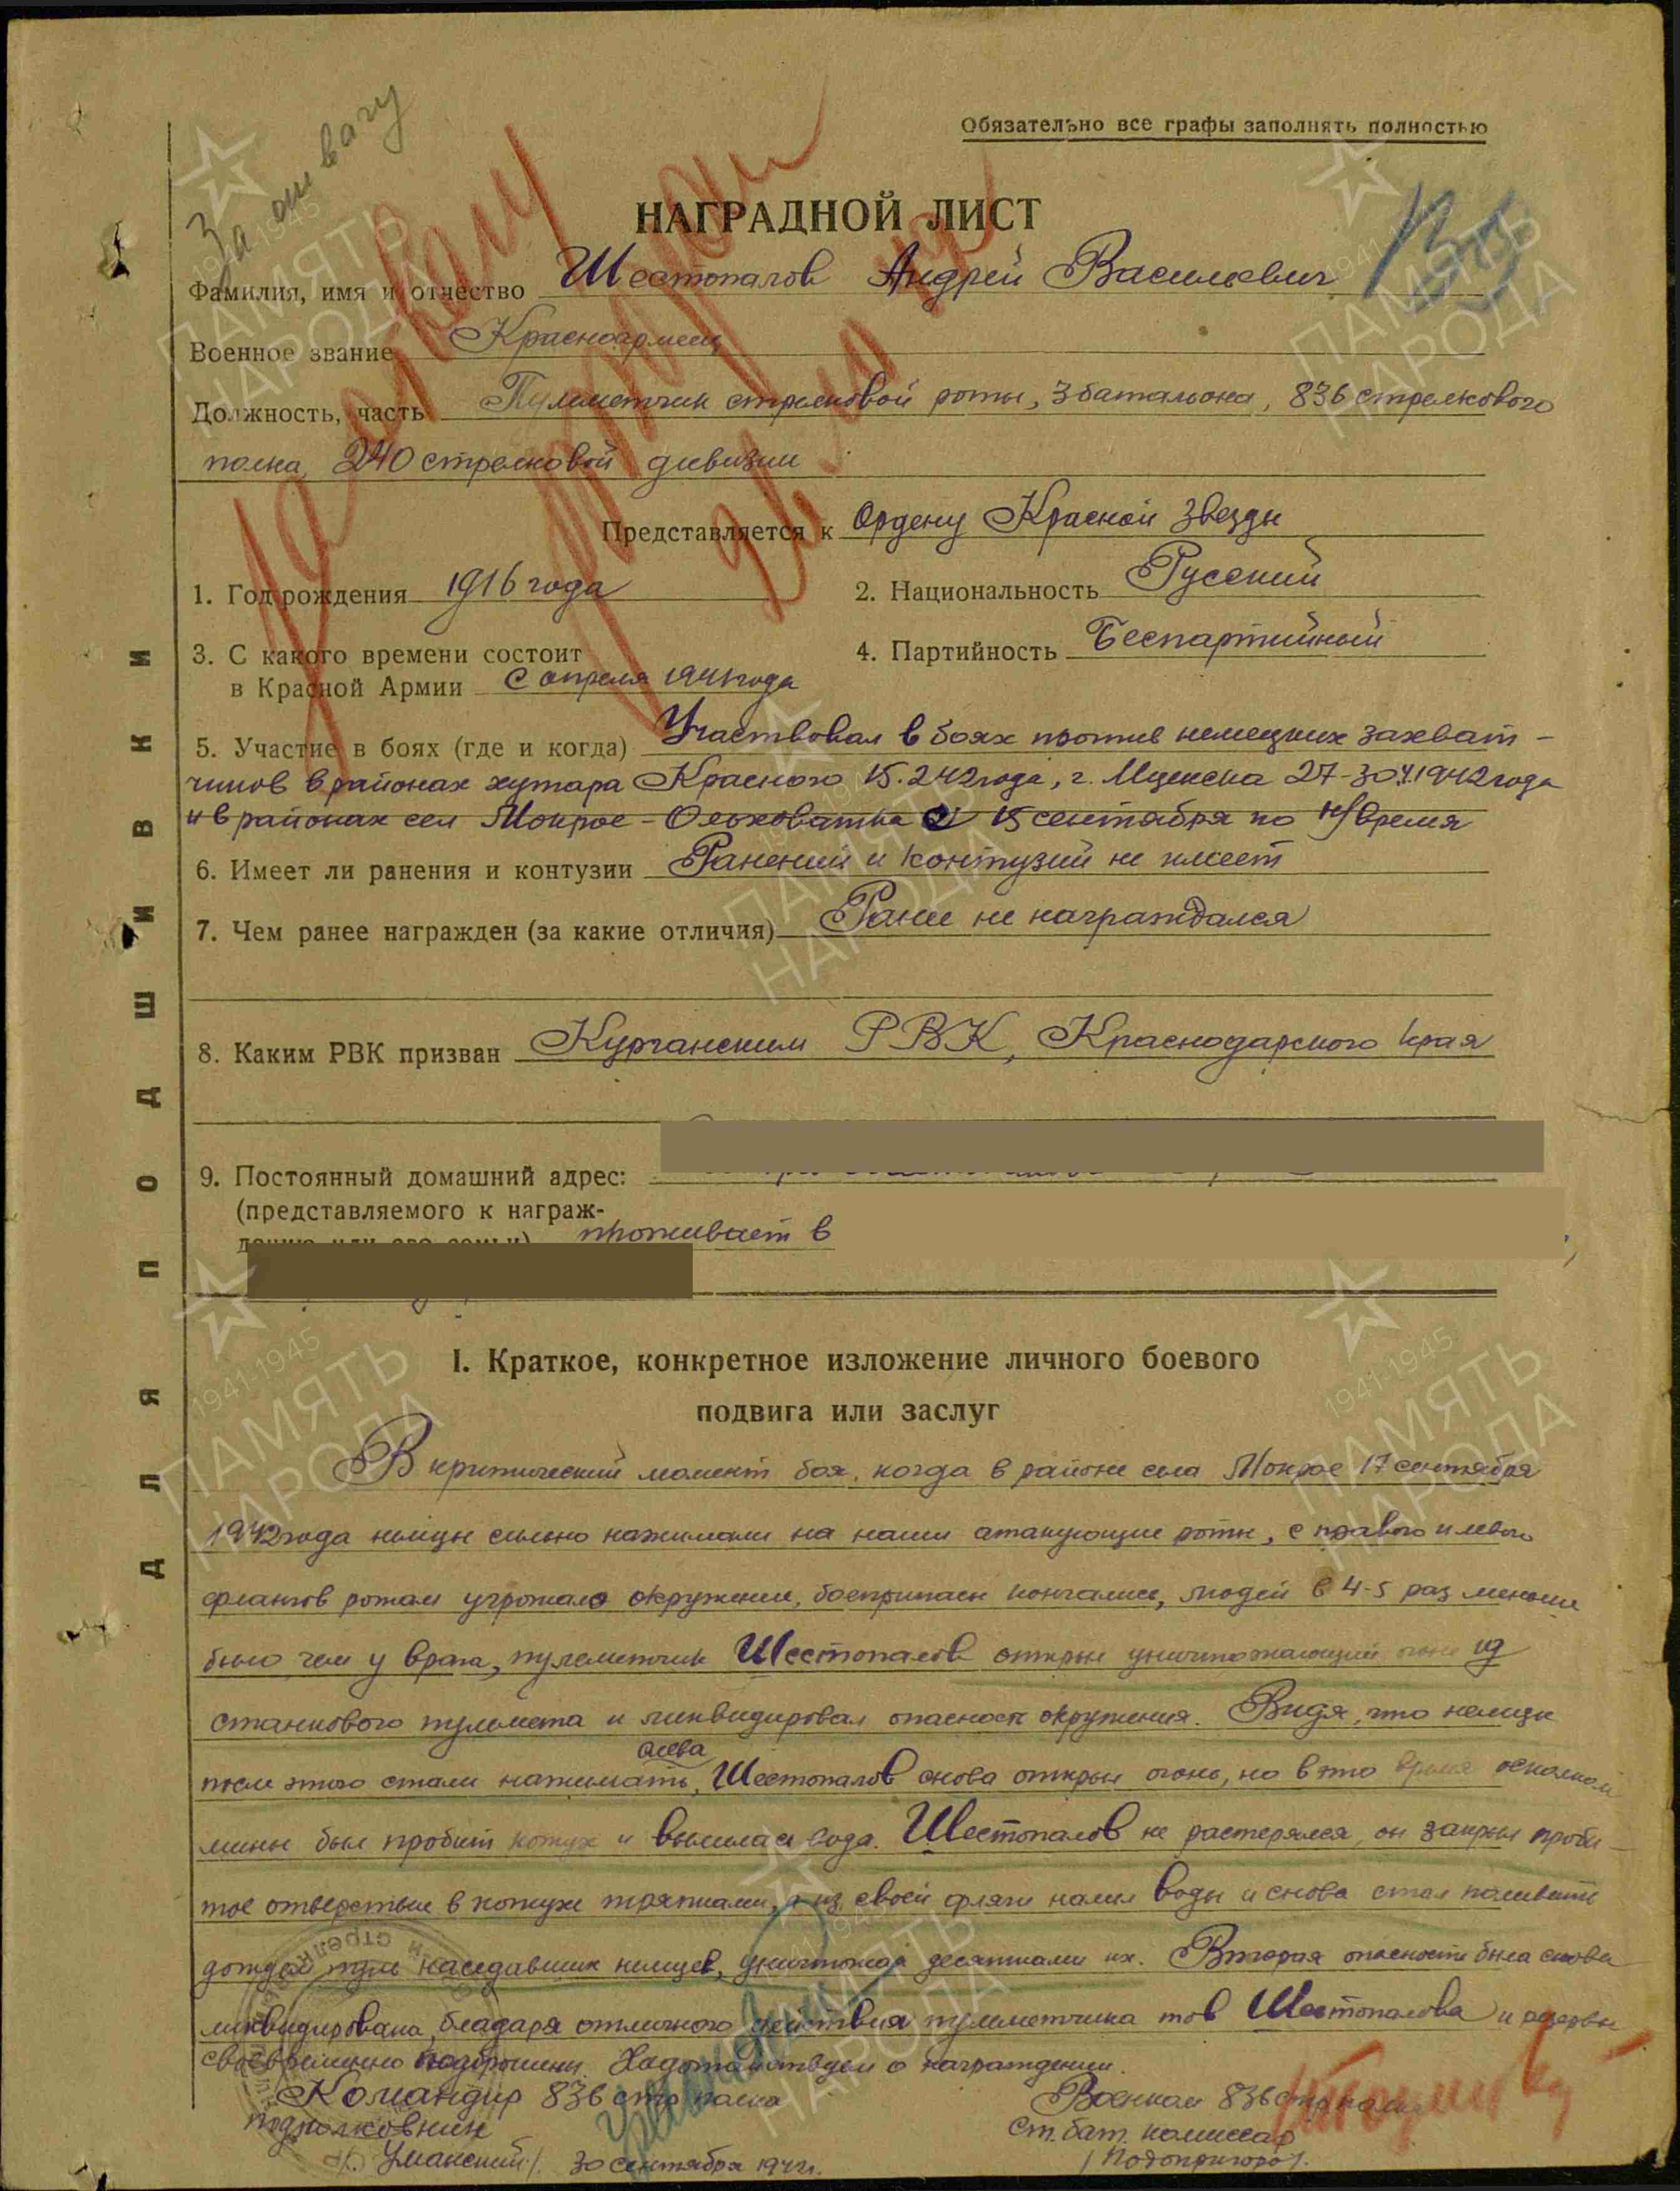 За отвагу
Обязательно все графы заполнять полностью
НАГРАДНОЙ ЛИСТ
Фамилия, имя и отчество Шестопалов Андрей Васильевич
Военное звание Красноармеец
Должность, часть Пулеметчик стрелковой роты, 3 батальона, 836 стрелкового
полка, 240 стрелковой дивизии
Представляется к Ордену Красной Звезды
1. Год рождения 1916 года
2. Национальность Русский
3. С какого времени состоит
в Красной Армии С апреля 1941 года
4. Партийность Беспартийный
5. Участие в боях (где и когда) Участвовал в боях против немецких захват-
чиков в районах хутара Красного 15.2.42 года, г. Мценска 27-30.V.1942 года
и в районах сел Мокрое - Ольховатка с 15 сентября по н/время
6. Имеет ли ранения и контузии Ранений и контузий не имеет
7. Чем ранее награжден (за какие отличия) Ранее не награждался
8. Каким РВК призван Курганским РВК, Краснодарского края
9. Постоянный домашний адрес:
(представляемого к награж-
проживает в
ДЛЯ ПОДШИВКИ
I. Краткое, конкретное изложение личного боевого
подвига или заслуг
В критический момент боя, когда в районе села Мокрое 17 сентября
1942 года немцы сильно нажимали на наши атакующие роты, с правого и левого
флангов ротам угрожало окружение, боеприпасы кончались, людей в 4-5 раз меньше
было чем у врага, пулеметчик Шестопалов открыл уничтожающий огонь из
станкового пулемета и ликвидировал опасность окружения. Видя, что немцы
после этого стали нажимать слева, Шестопалов снова открыл огонь, но в это время осколком
мины был пробит кожух и вылилась вода. Шестопалов не растерялся, он закрыл проби-
тое отверстие в кожухе тряпками, и из своей фляги налил воды и снова стал поливать
дождем пуль наседавших немцев, уничтожая десятками их. Вторая опасность была снова
ликвидирована, благодаря отличного действия пулеметчика тов Шестопалова и резервы
своевременно подброшены. Ходатайствуем о награждении.
Командир 836 стр полка
подполковник
/Уманский/. 30 сентября 1942г.
Военком 836 стр полка
ст. бат. комиссар
/Подопригора/.
1941-1945
ПАМЯТЬ
НАРОДА